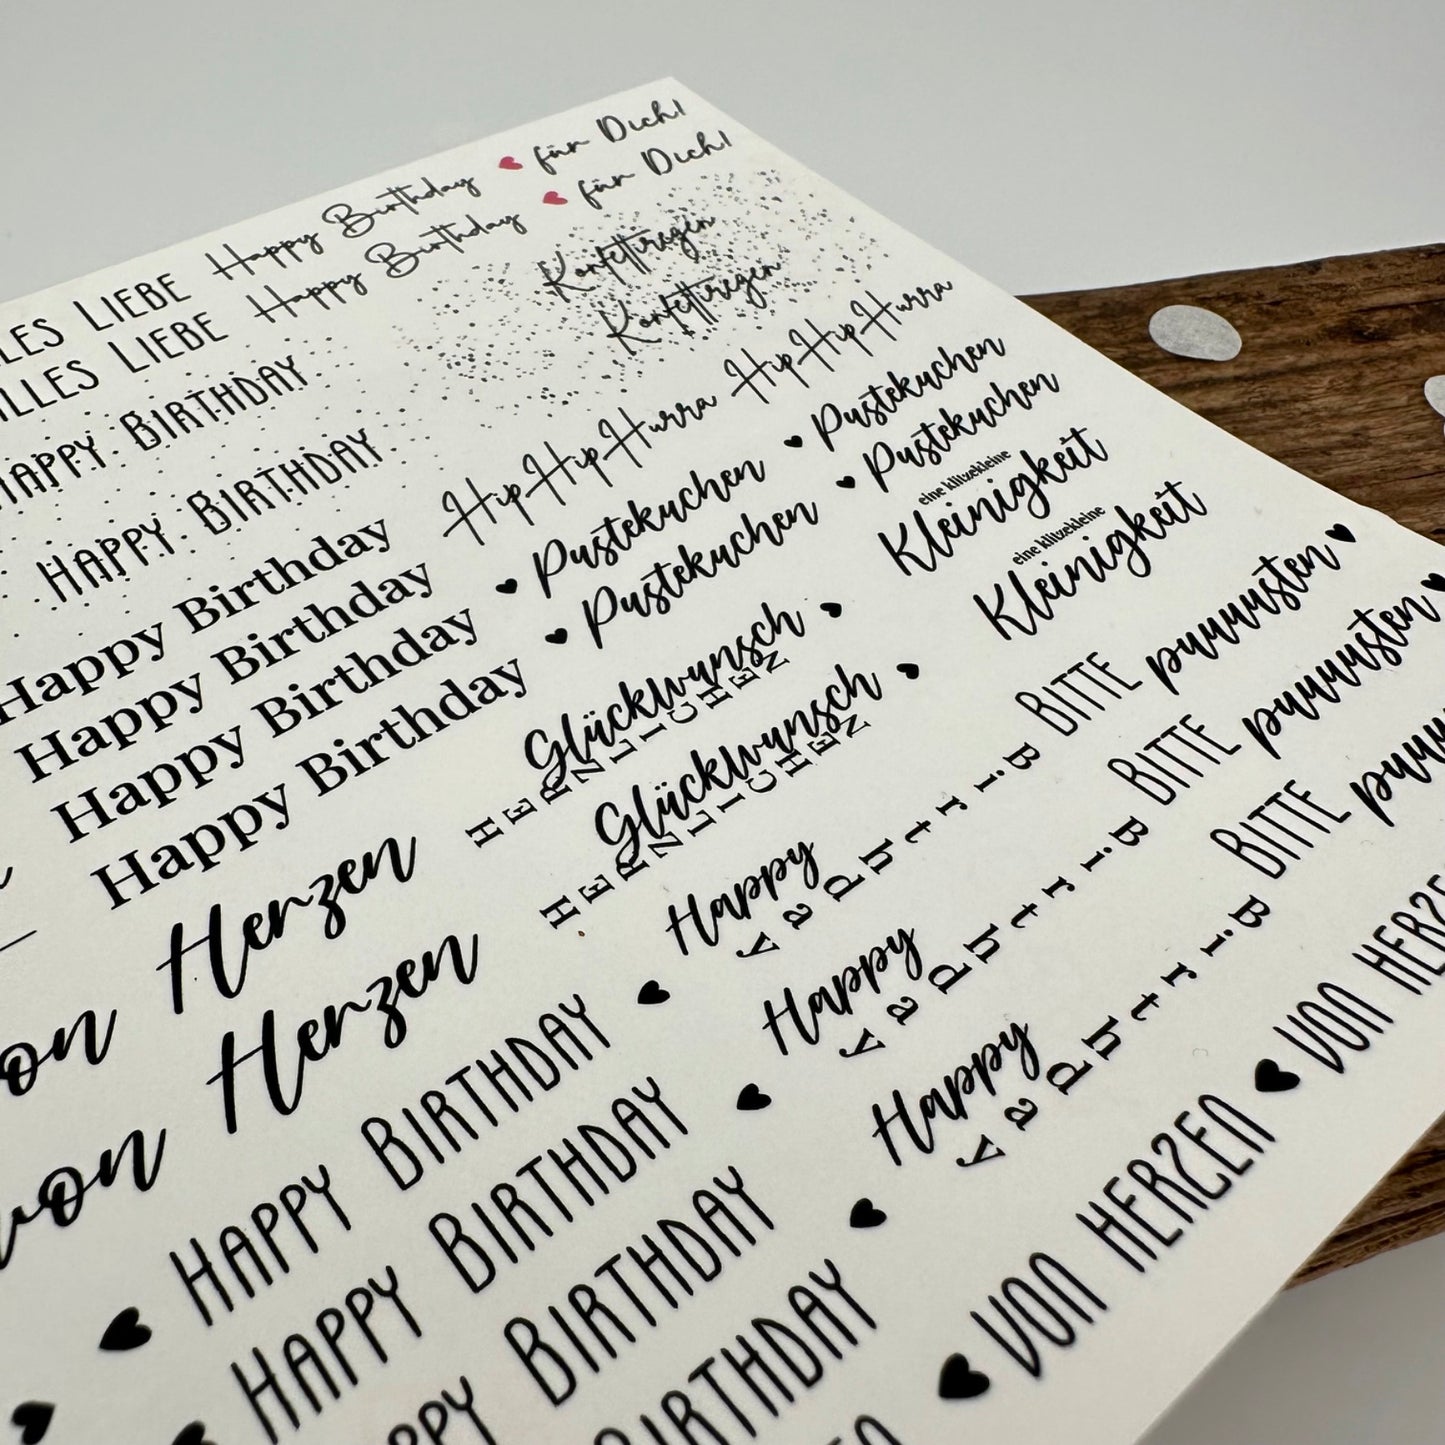 LIEBE Happy Birthday für Dich!
ALLES LIEBE Happy Birthday für Dich!
Konfettiregen
Konfettiregen
HAPPY BIRTHDAY
HAPPY BIRTHDAY
HipHipHurra HipHipHurra
Happy Birthday
Happy Birthday
Happy Birthday
Happy Birthday
Pustekuchen Pustekuchen
Pustekuchen Pustekuchen
eine klitzekleine
Kleinigkeit
eine klitzekleine
Kleinigkeit
Glückwunsch
HERZLICHEN
Glückwunsch
HERZLICHEN
BITTE puuuusten
BITTE puuuusten
BITTE
von Herzen
von Herzen
Happy
Birthday
Happy
Birthday
Happy
Birthday
HAPPY BIRTHDAY
HAPPY BIRTHDAY
BIRTHDAY
BIRTHDAY
VON HERZEN VON
VON HERZEN